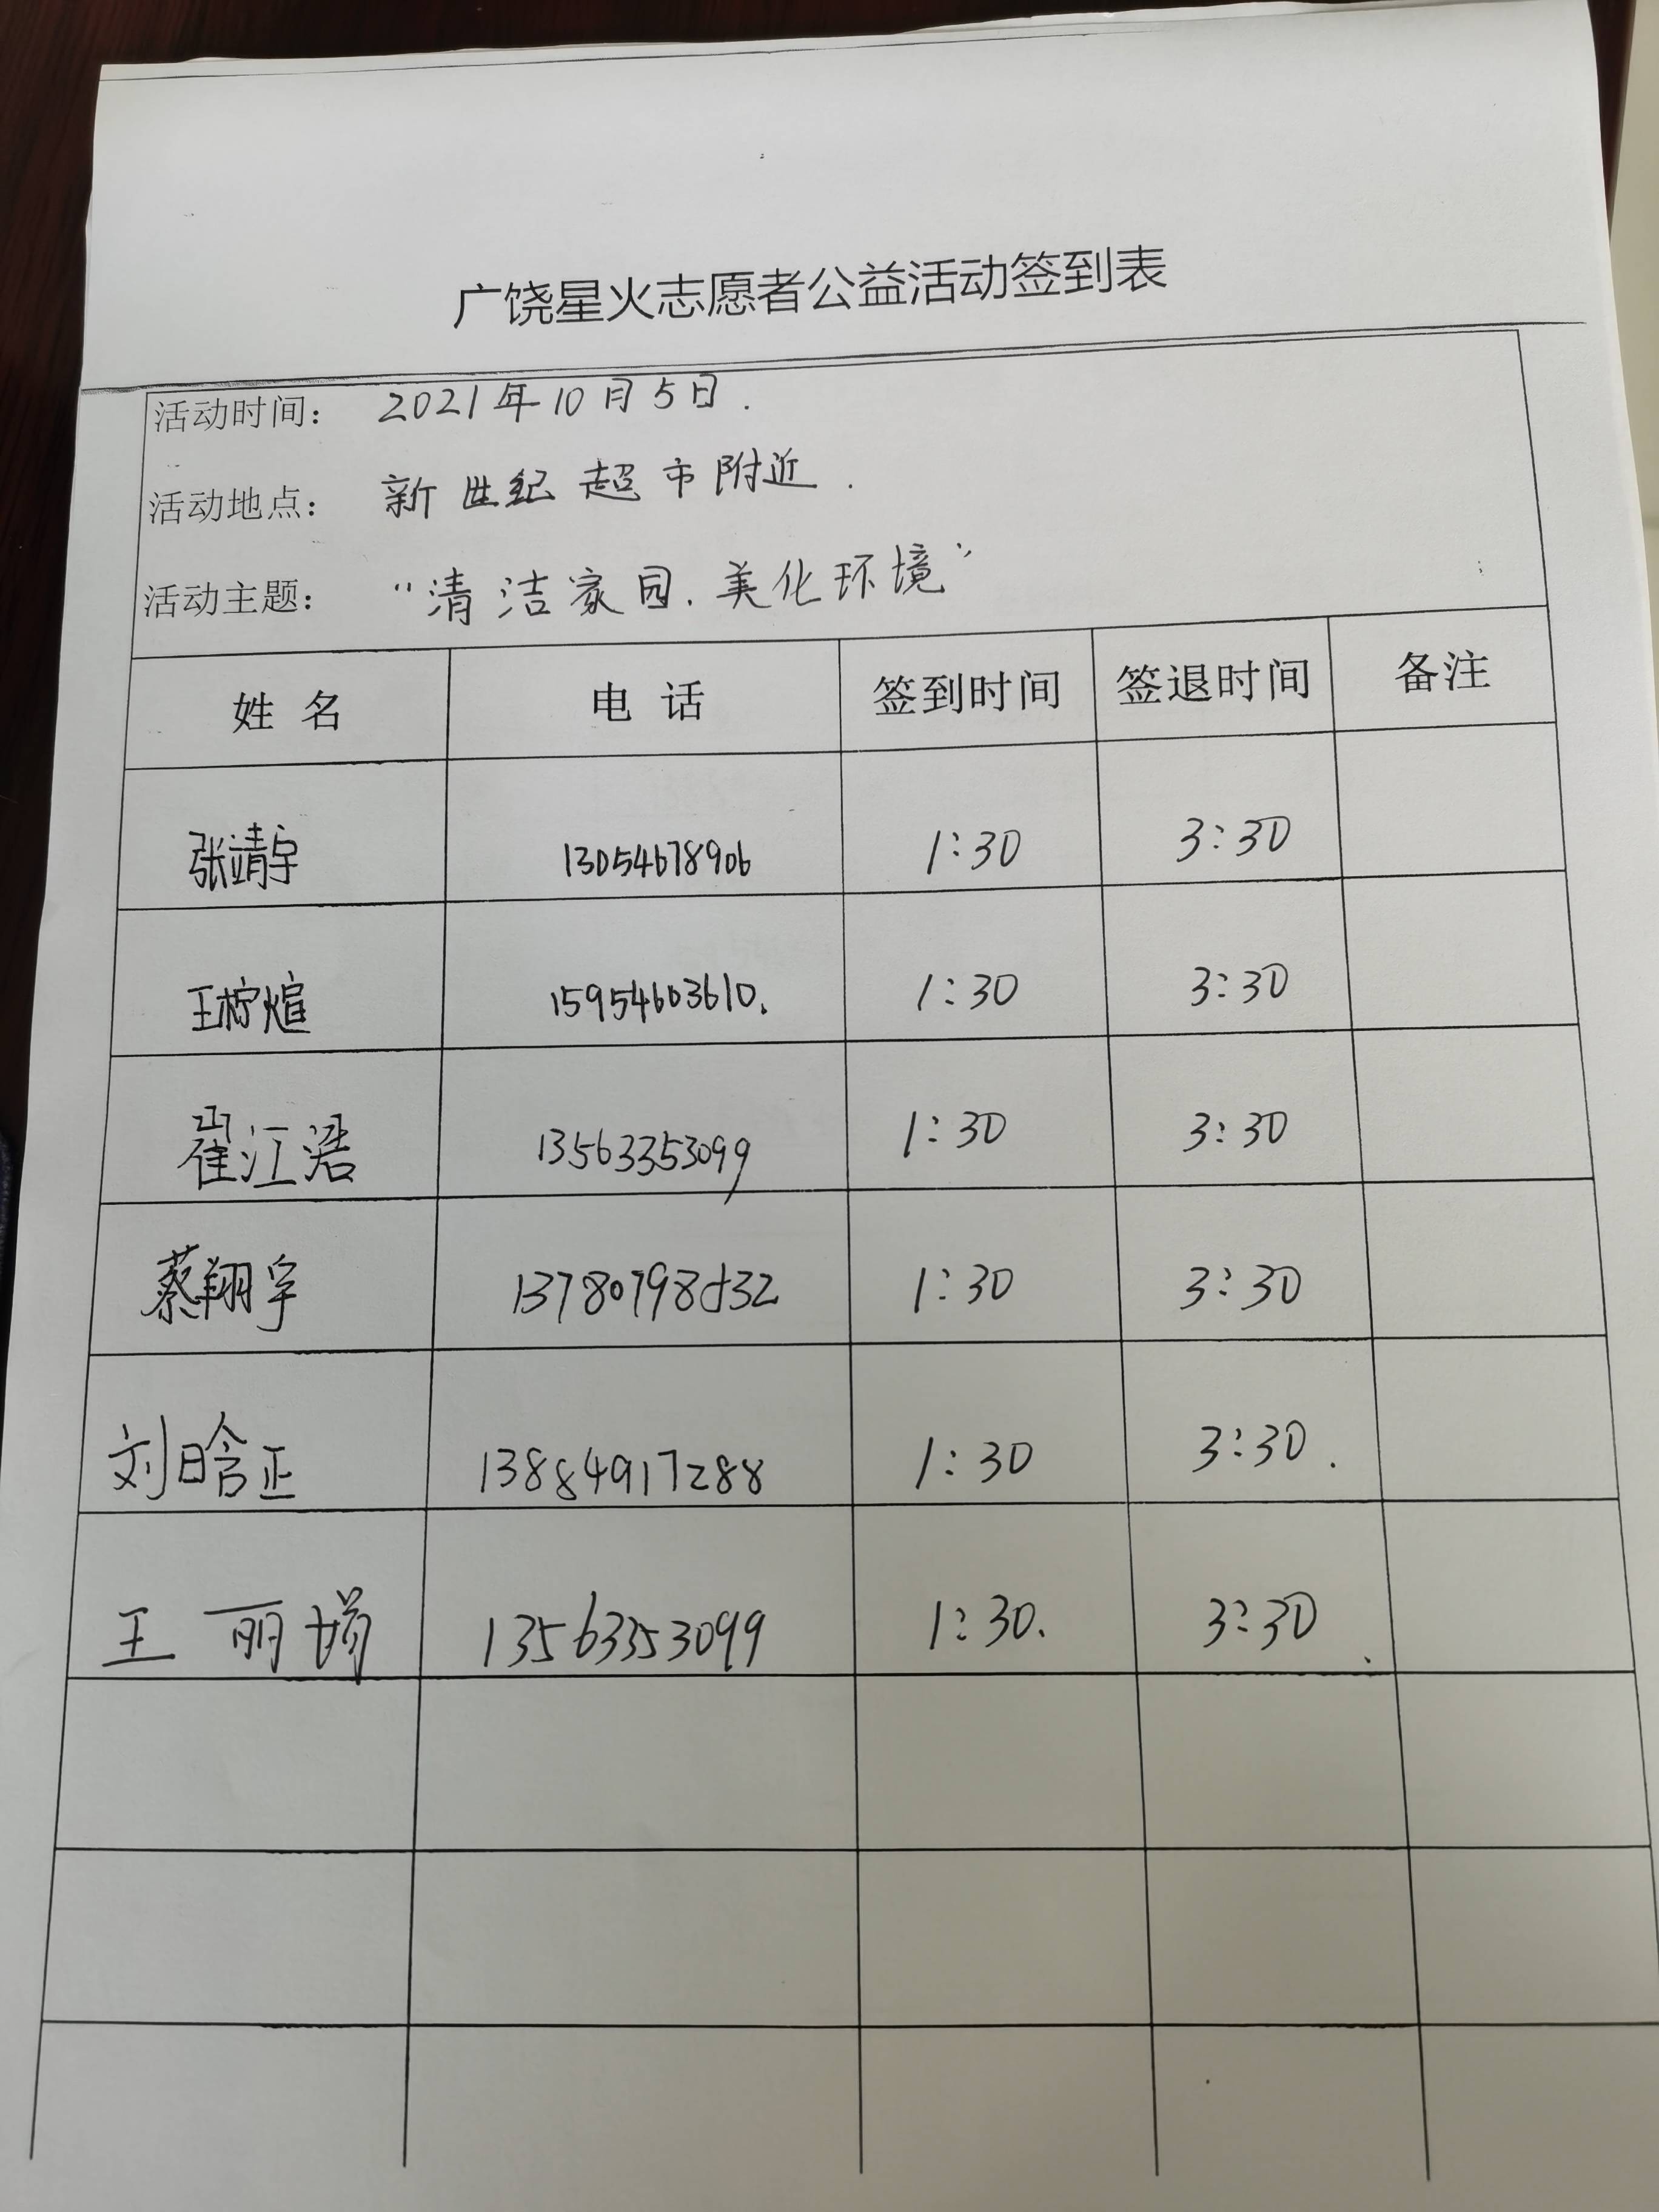 广饶星火志愿者公益活动签到表
活动时间: 2021年10月5日.
活动地点: 新世纪超市附近.
活动主题: “清洁家园.美化环境”
姓名 电话 签到时间 签退时间 备注
张靖宇 13054678906 1:30 3:30
王柠煊 15954603610. 1:30 3:30
崔江浩 13563353099 1:30 3:30
蔡翔宇 13780798532 1:30 3:30
刘晗正 13884917288 1:30 3:30.
王丽 13563353099 1:30. 3:30.